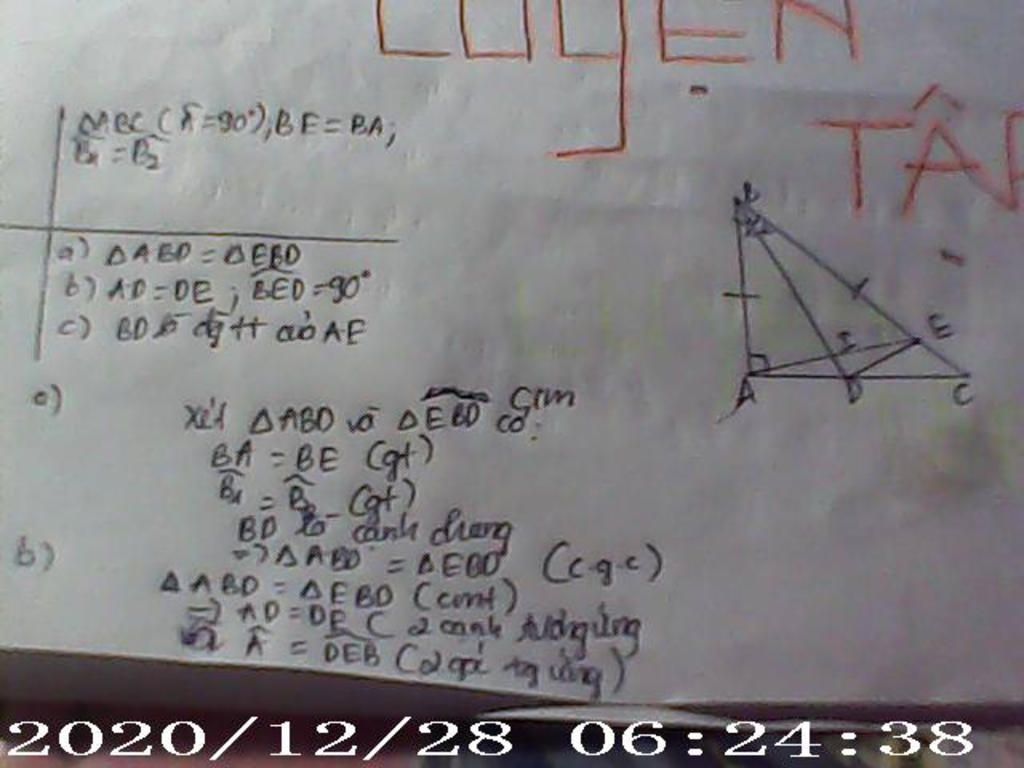 LUYỆN
TẬP
ΔABC (Â=90°), BE = BA;
B̂₁ = B̂₂
a) ΔABD = ΔEBD
b) AD = DE ; BED = 90°
c) BD là đg tt của AE
B
E
I
A
D
C
a)
Xét ΔABD và ΔEBD có:
BA = BE (gt)
B̂₁ = B̂₂ (gt)
BD là cạnh chung
=> ΔABD = ΔEBD (c.g.c)
b)
ΔABD = ΔEBD (cmt)
=> AD = DE (2 cạnh tương ứng
Â = DEB (2 góc tg ứng)
2020/12/28 06:24:38